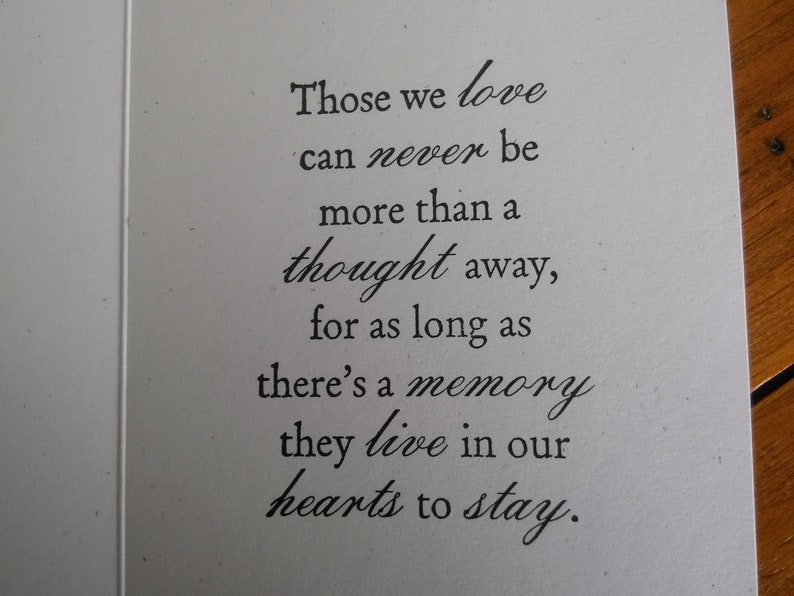 Those we love
can never be
more than a
thought away,
for as long as
there's a memory
they live in our
hearts to stay.